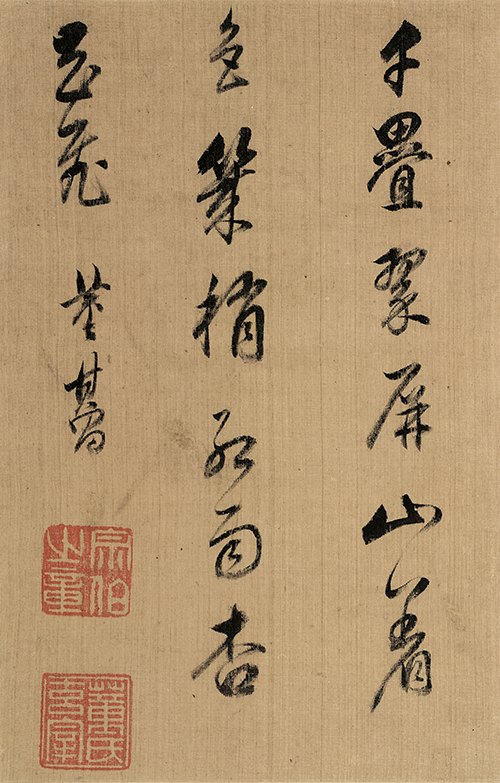 千疊翠屏山着
色 稍紅雨杏
花飛 董其昌
宗伯之章
董氏玄宰